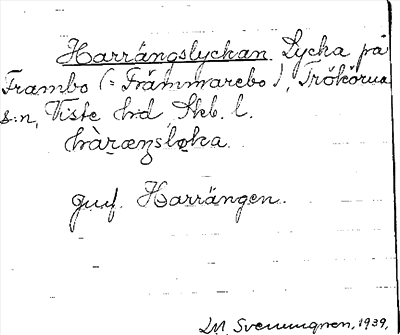 Harrängslyckan. Lycka på
Frambo (= Främmarebo), Trökörna
s:n, Viste hd, Skb. l.
hàræŋsløka.
jmf. Harrängen.
M. Svenungsson, 1939.